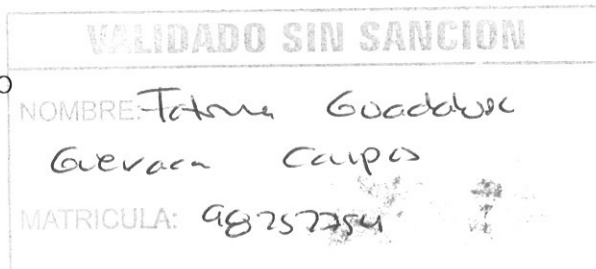 VALIDADO SIN SANCION
NOMBRE: Fatima Guadalupe
Guevara Campos
MATRICULA: